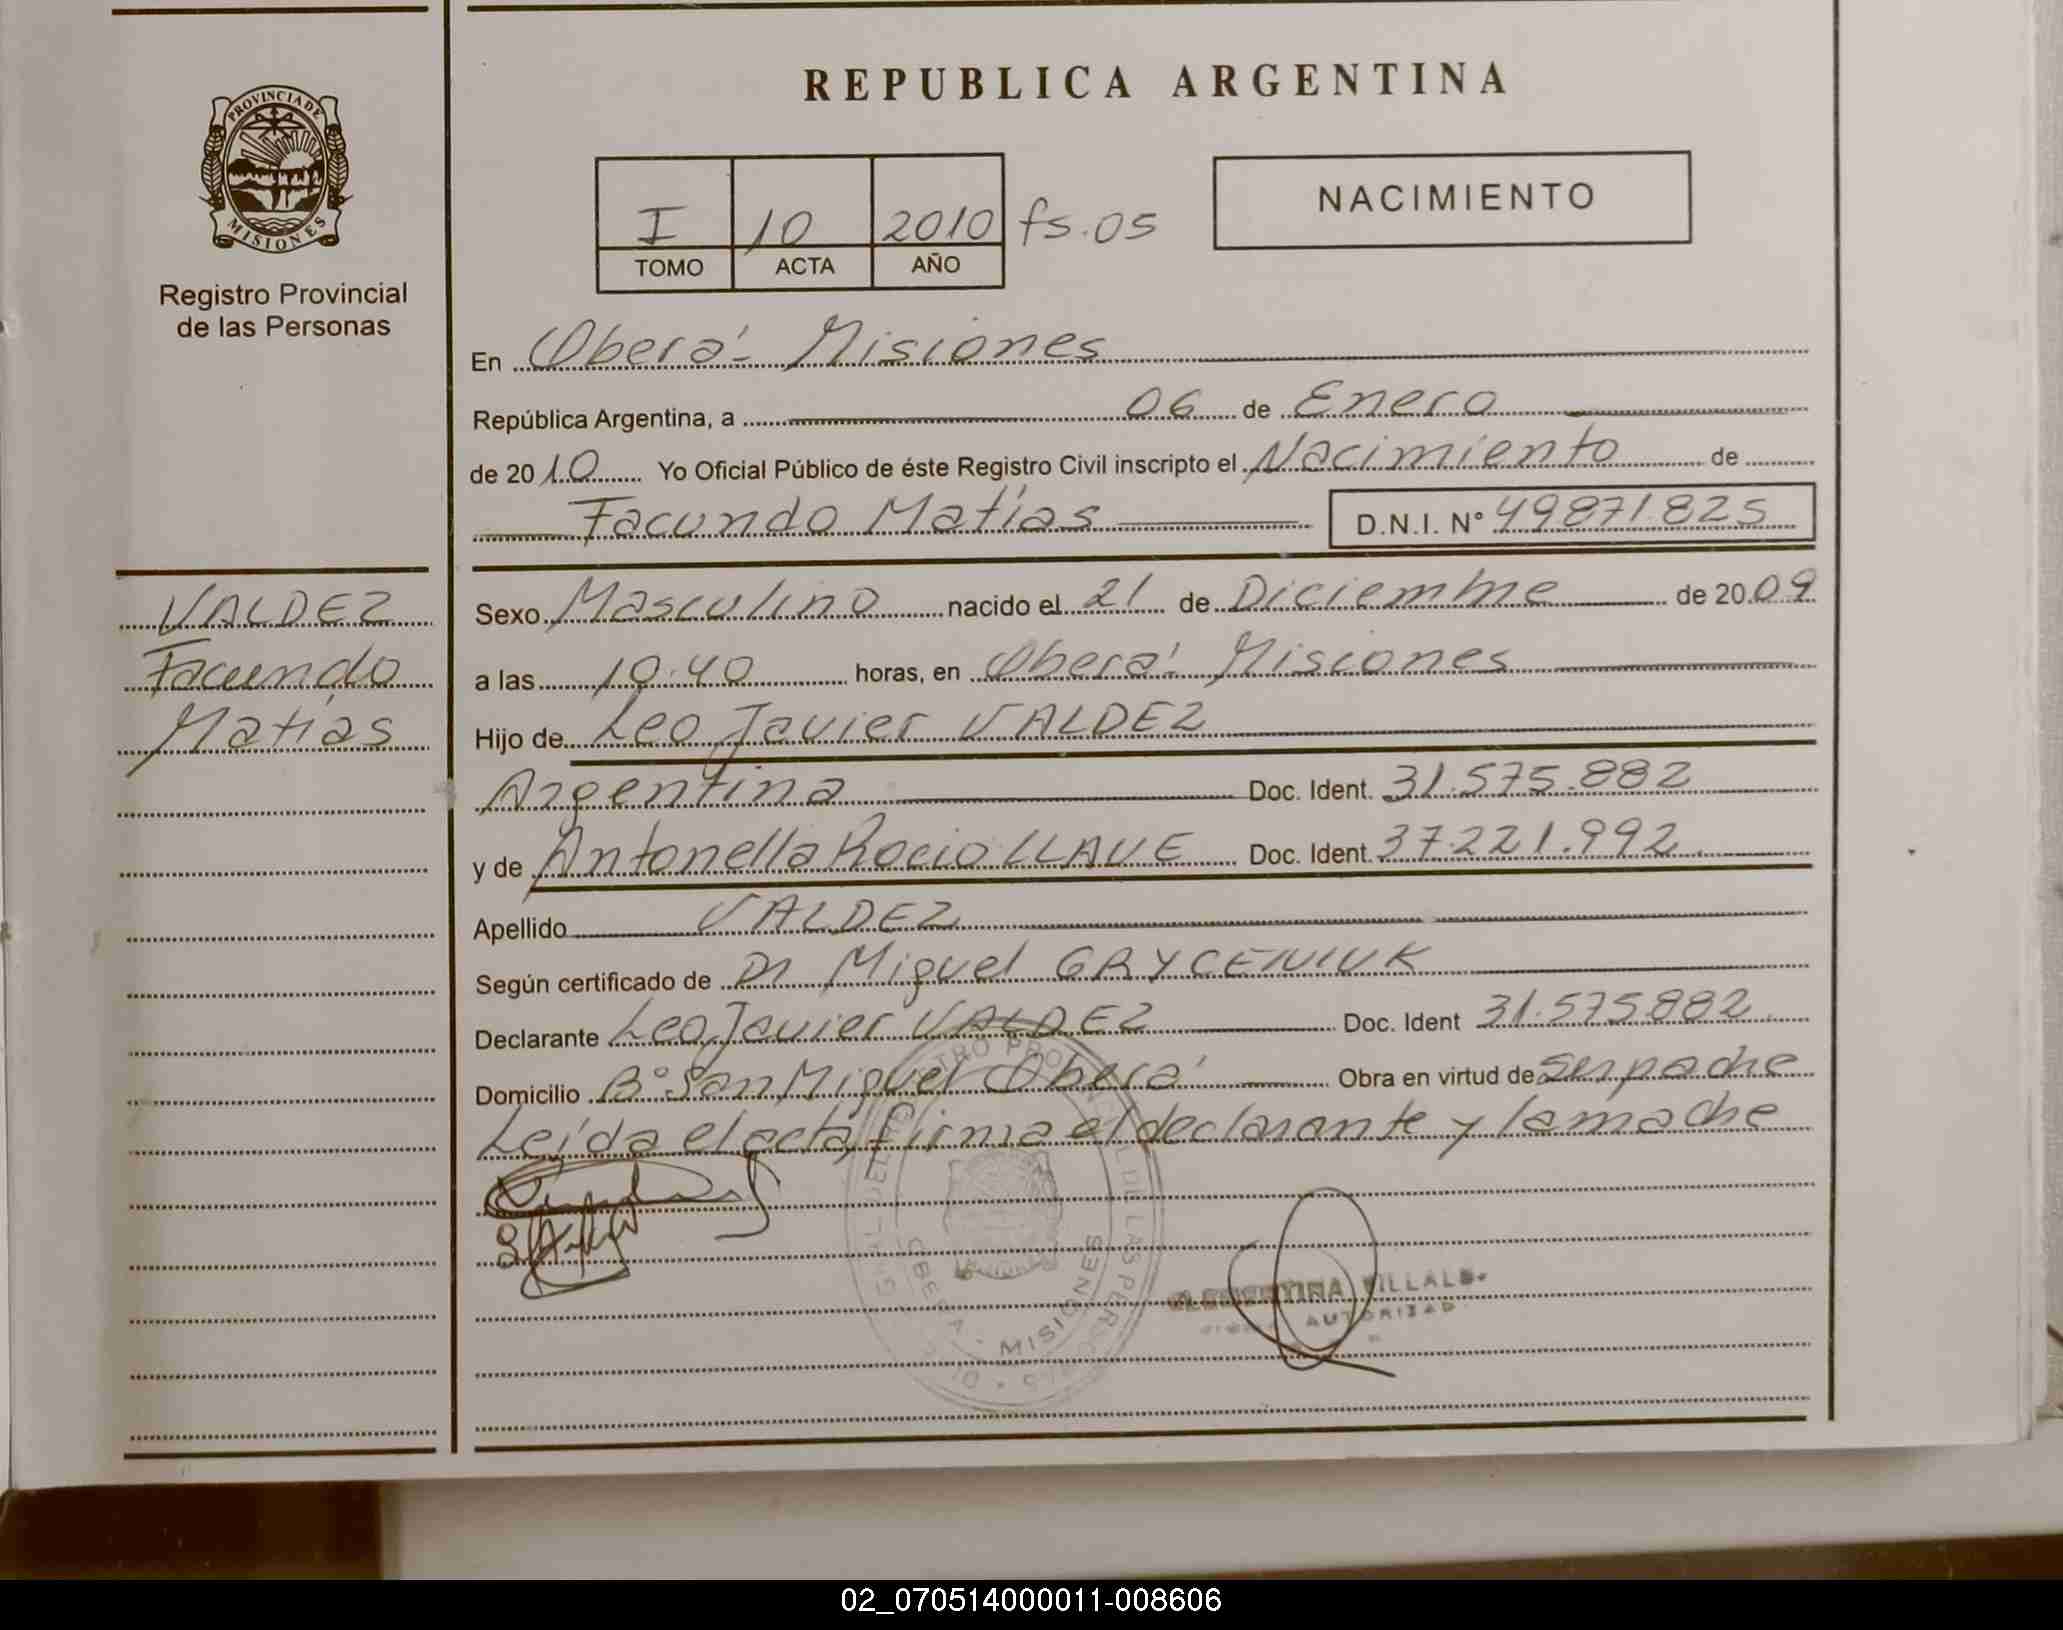 REPUBLICA ARGENTINA
PROVINCIA DE
MISIONES
Registro Provincial
de las Personas
I 10 2010 fs. 05
TOMO ACTA AÑO
NACIMIENTO
En Oberá - Misiones
República Argentina, a 06 de Enero
de 2010 Yo Oficial Público de éste Registro Civil inscripto el Nacimiento de
Facundo Matías D.N.I. N° 49871.825
VALDEZ
Facundo
Matías
Sexo Masculino nacido el 21 de Diciembre de 2009
a las 10:40 horas, en Oberá - Misiones
Hijo de Leo Javier VALDEZ
Argentina Doc. Ident. 31.575.882
y de Antonella Rocio LLAVE Doc. Ident. 37.221.992
Apellido VALDEZ
Según certificado de Dr Miguel GRYCENIUK
Declarante Leo Javier VALDEZ Doc. Ident 31.575882
Domicilio B° San Miguel Oberá Obra en virtud de ser padre
Leída el acta firma el declarante y la madre
OBERA - MISIONES
AUTORIZAD
02_070514000011-008606